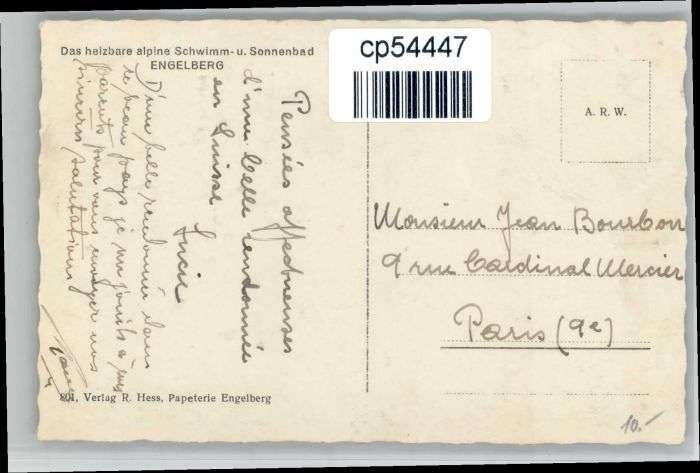 cp54447
Das heizbare alpine Schwimm- u. Sonnenbad
ENGELBERG
A. R. W.
Pensées affectueuses
d'une belle randonnée
en Suisse
Lucie
D'une belle randonnée dans
ce beau pays je me joints à mes
parents pour vous envoyer nos
sincères salutations
Monsieur Jean Bourbon
9 rue Cardinal Mercier
Paris (9e)
801, Verlag R. Hess, Papeterie Engelberg
10.-